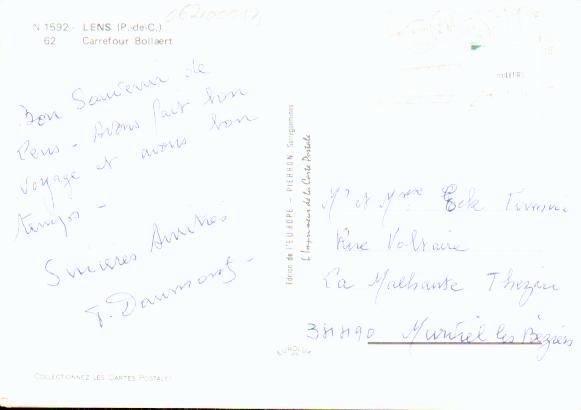 N 1592 - LENS (P.-de-C.)
62 Carrefour Bollaert
Bon Souvenir de
Lens - Avons fait bon
voyage et avons bon
temps -
Sincères Amitiés
Edition de l'EUROPE - PIERRON Sarreguemines
le Imprimeur de la Carte Postale
Mr et Mme
Rue Voltaire
La Malhaute Thézan
34490 Murviel les Béziers
EUROLUX
COLLECTIONNEZ LES CARTES POSTALES